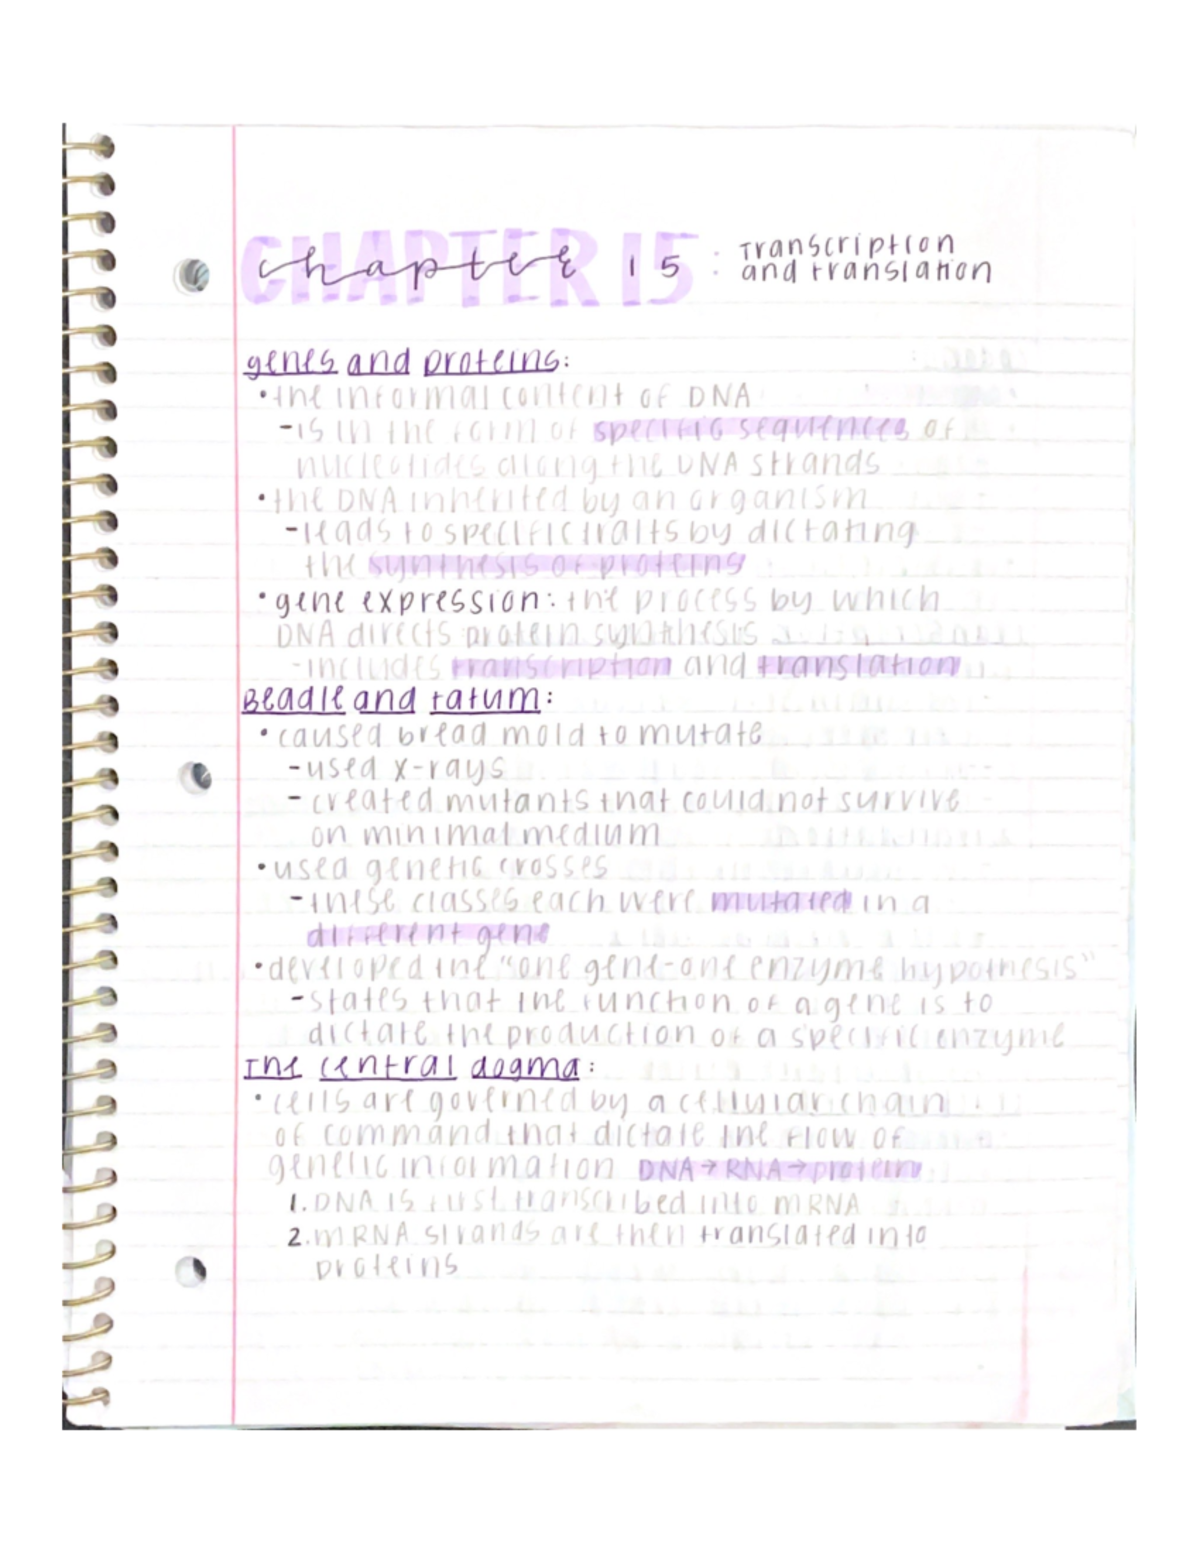 CHAPTER 15
chapter 15 : Transcription
and translation
genes and proteins:
• the informal content of DNA
- is in the form of specific sequences of
nucleotides along the DNA strands
• the DNA inherited by an organism
- leads to specific traits by dictating
the synthesis of proteins
• gene expression: the process by which
DNA directs protein synthesis
- includes transcription and translation
Beadle and Tatum:
• caused bread mold to mutate
- used x-rays
- created mutants that could not survive
on minimal medium
• used genetic crosses
- these classes each were mutated in a
different gene
• developed the "one gene-one enzyme hypothesis"
- states that the function of a gene is to
dictate the production of a specific enzyme
The central dogma:
• cells are governed by a cellular chain
of command that dictate the flow of
genetic information DNA → RNA → protein
1. DNA is first transcribed into mRNA
2. mRNA strands are then translated into
proteins